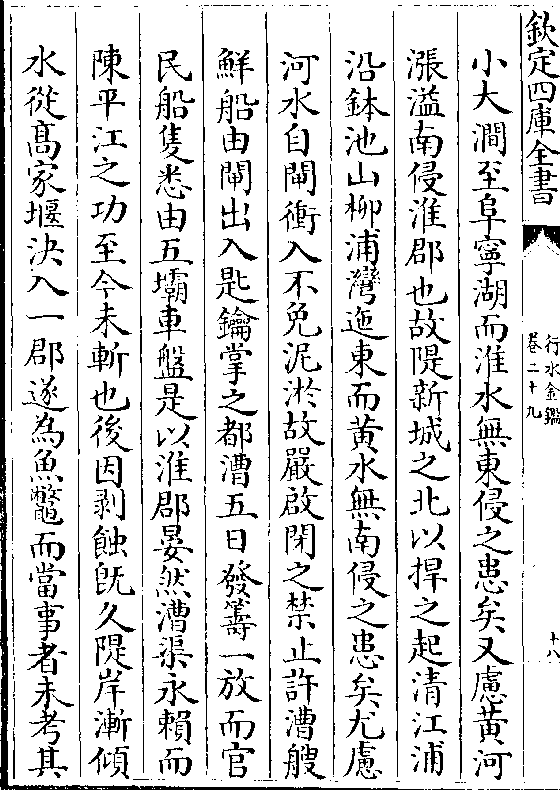 欽定四庫全書
行水金鑑
卷二十九
十八
小大澗至阜寧湖而淮水無東侵之患矣又慮黃河
漲溢南侵淮郡也故隄新城之北以捍之起清江浦
沿鉢池山柳浦灣迤東而黃水無南侵之患矣尤慮
河水自閘衝入不免泥淤故嚴啟閉之禁止許漕艘
鮮船由閘出入匙鑰掌之都漕五日發籌一放而官
民船隻悉由五壩車盤是以淮郡晏然漕渠永賴而
陳平江之功至今未斬也後因剥蝕旣久隄岸漸傾
水從髙家堰決入一郡遂為魚鼈而當事者未考其